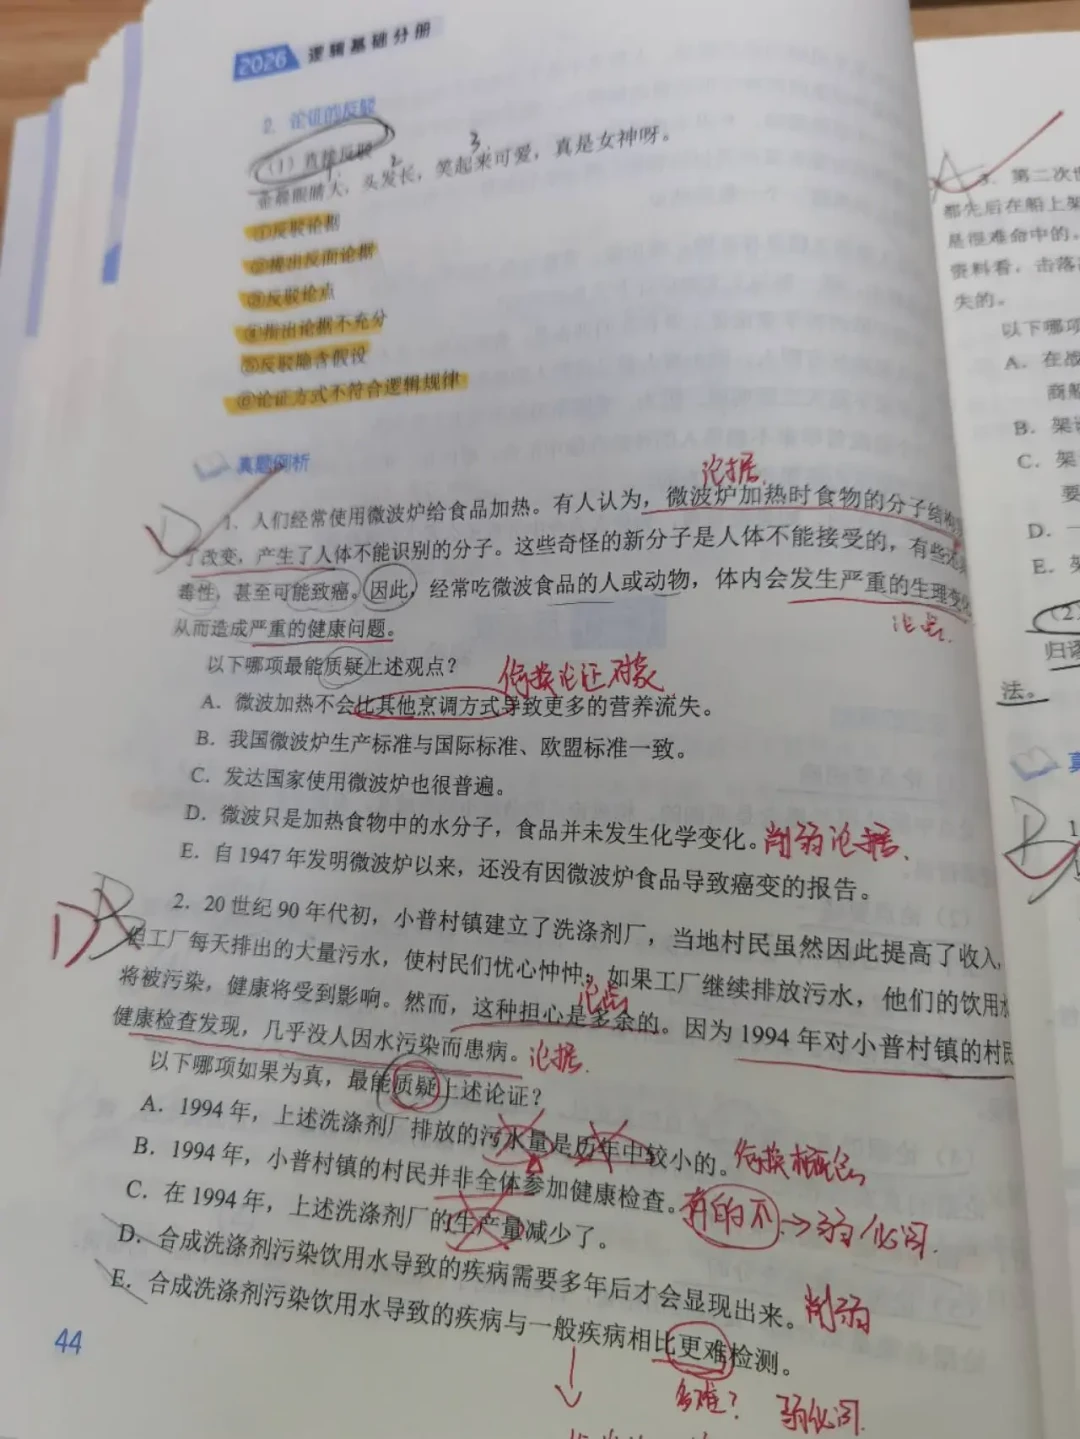 2026 逻辑基础分册
2. 论证的反驳
(1) 直接反驳
1. 2 3.
金晨眼睛大，头发长，笑起来可爱，真是女神呀。
①反驳论据
②提出反面论据
③反驳论点
④指出论据不充分
⑤反驳隐含假设
⑥论证方式不符合逻辑规律
真题例析
论据
D
1. 人们经常使用微波炉给食品加热。有人认为，微波炉加热时食物的分子结构
了改变，产生了人体不能识别的分子。这些奇怪的新分子是人体不能接受的，有些还
毒性，甚至可能致癌。因此，经常吃微波食品的人或动物，体内会发生严重的生理变化
从而造成严重的健康问题。
论点.
以下哪项最能质疑上述观点？
偷换论证对象
A. 微波加热不会比其他烹调方式导致更多的营养流失。
B. 我国微波炉生产标准与国际标准、欧盟标准一致。
C. 发达国家使用微波炉也很普遍。
D. 微波只是加热食物中的水分子，食品并未发生化学变化。削弱论据.
E. 自1947年发明微波炉以来，还没有因微波炉食品导致癌变的报告。
D B
2. 20世纪90年代初，小普村镇建立了洗涤剂厂，当地村民虽然因此提高了收入，
但工厂每天排出的大量污水，使村民们忧心忡忡：如果工厂继续排放污水，他们的饮用水
将被污染，健康将受到影响。然而，这种担心是多余的。因为1994年对小普村镇的村民
论点
健康检查发现，几乎没人因水污染而患病。论据.
以下哪项如果为真，最能质疑上述论证？
A. 1994年，上述洗涤剂厂排放的污水量是历年中较小的。偷换概念
B. 1994年，小普村镇的村民并非全体参加健康检查。有的不→弱化词.
C. 在1994年，上述洗涤剂厂的生产量减少了。
D. 合成洗涤剂污染饮用水导致的疾病需要多年后才会显现出来。削弱
E. 合成洗涤剂污染饮用水导致的疾病与一般疾病相比更难检测。
多难？ 弱化词.
44
A
3. 第二次世
都先后在船上架
是很难命中的。
资料看，击落
失的。
以下哪项
A. 在战
商船
B. 架设
C. 架
要
D. 一
E.
(2)
归谬
法。
真
B
1